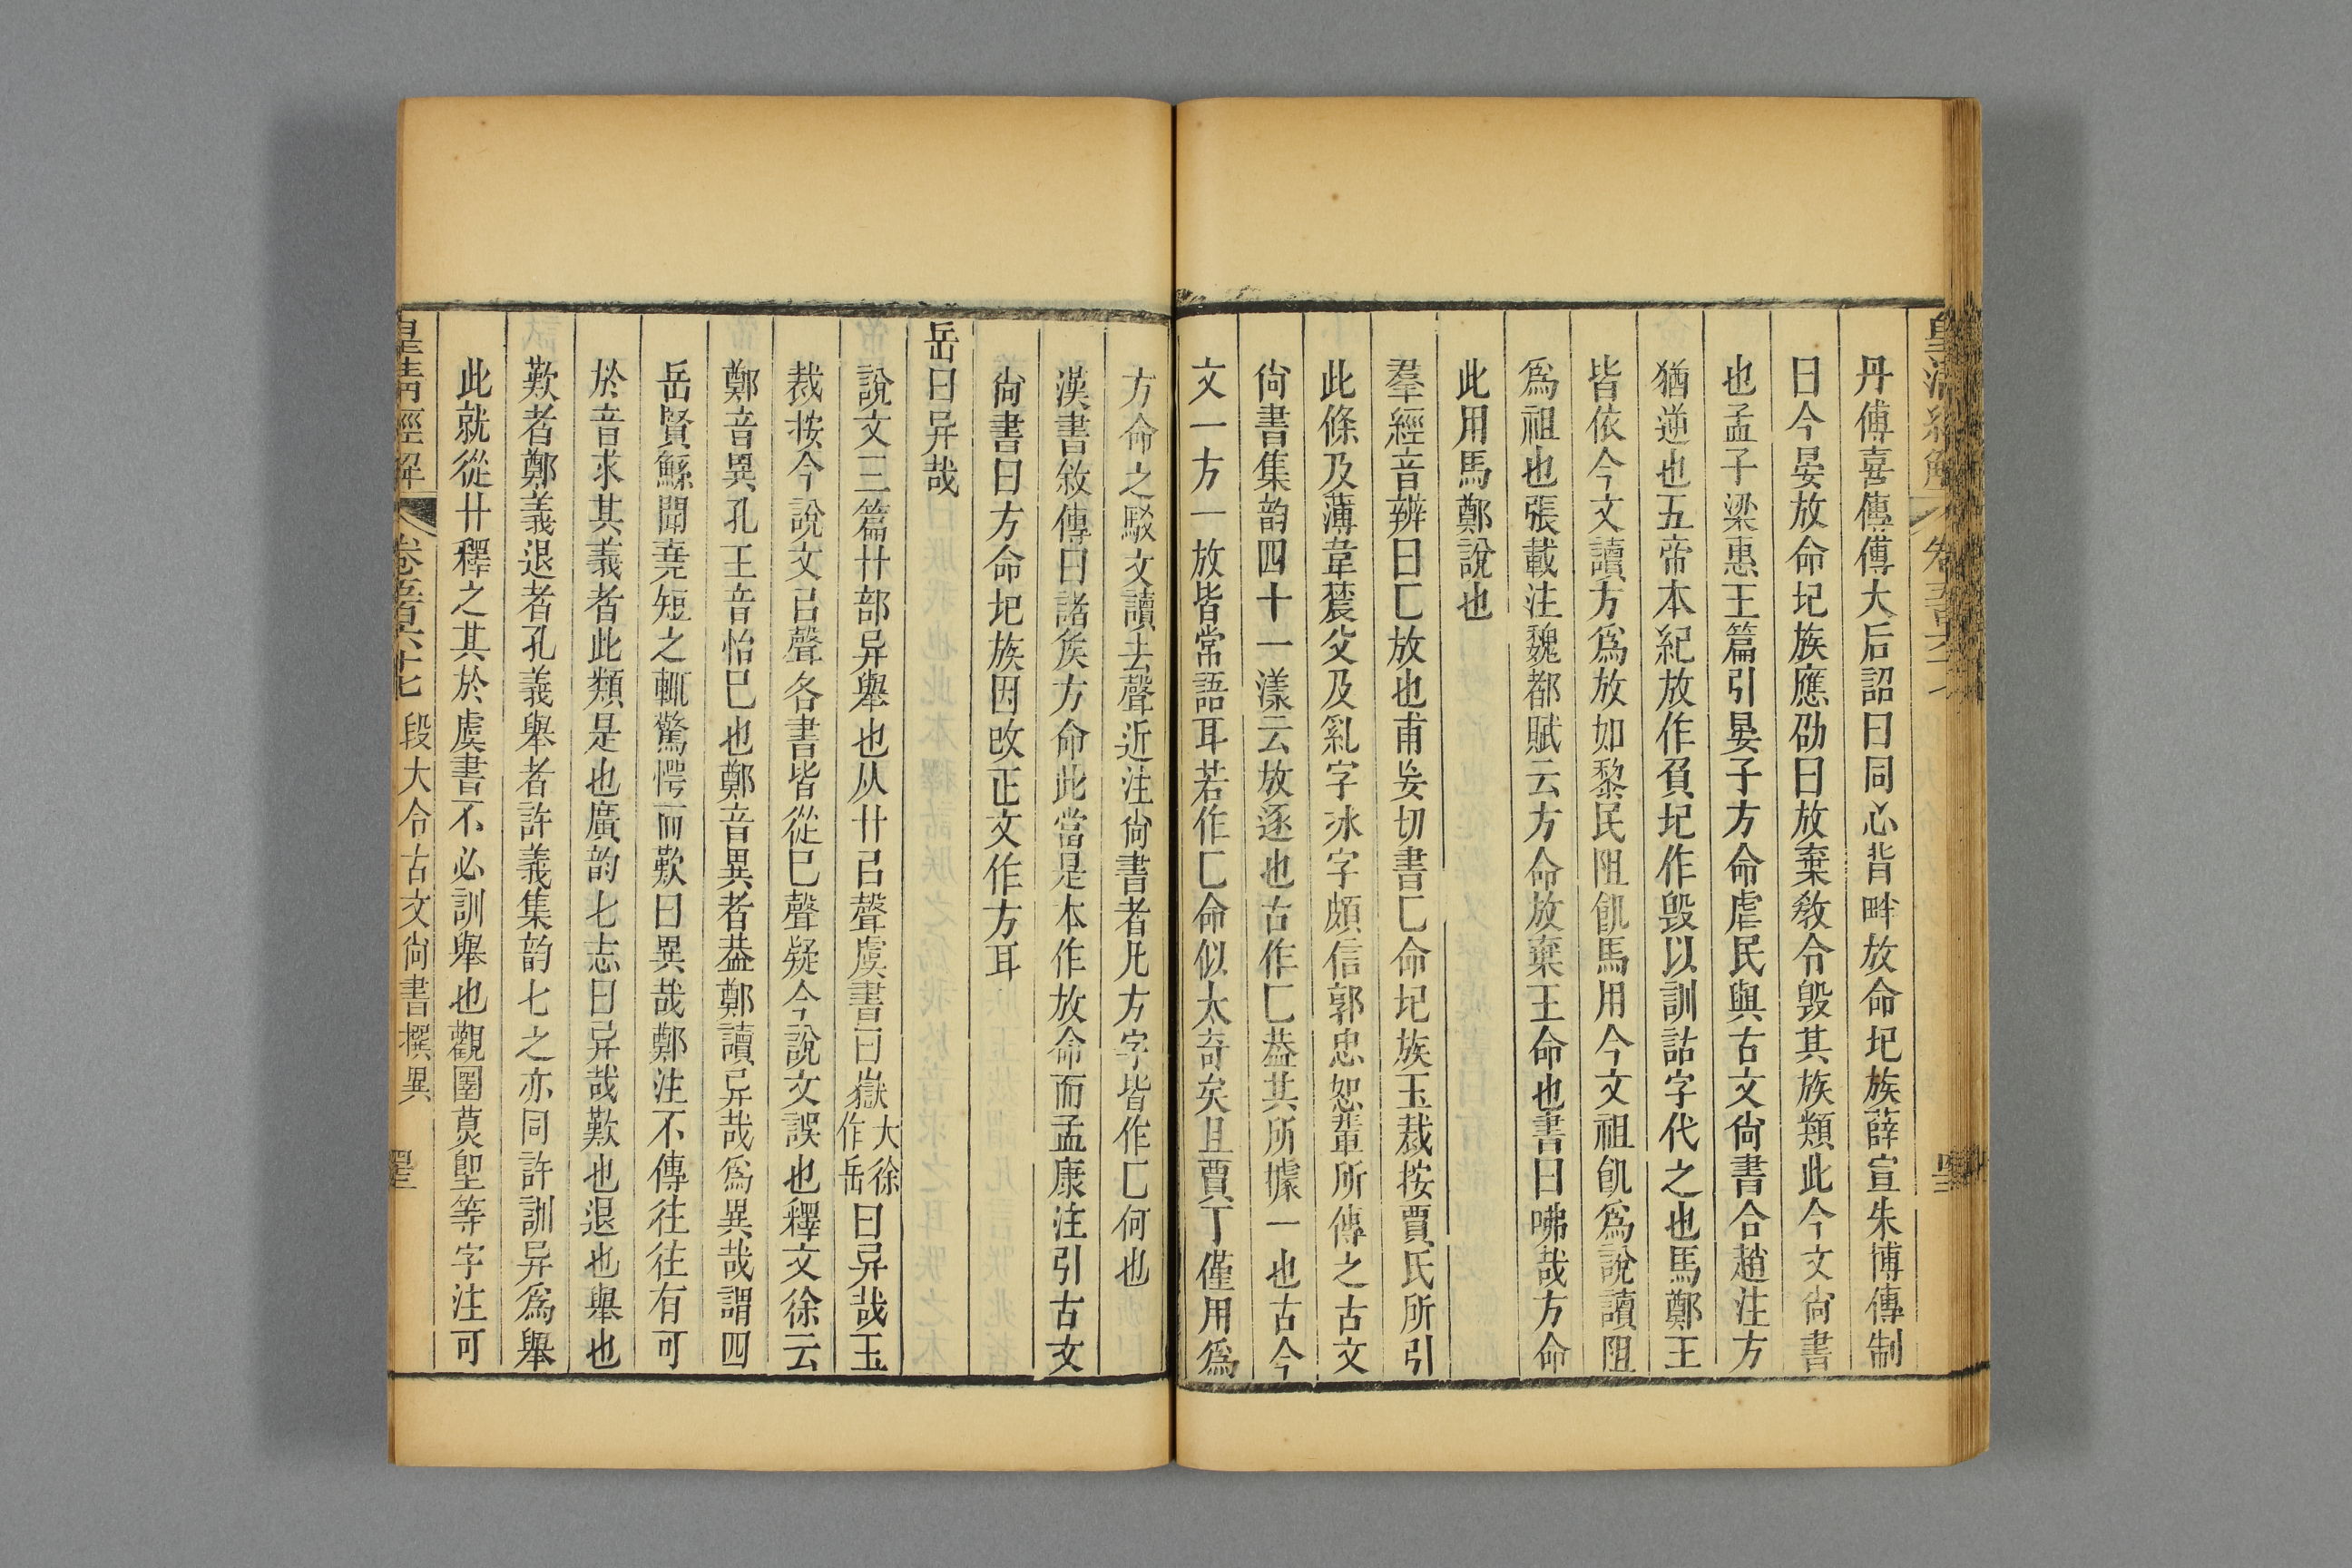 丹傅喜傳傅大后詔曰同心背畔放命圮族薛宣朱博傳制
曰今晏放命圮族應劭曰放棄敎令毀其族類此今文尙書
也孟子梁惠王篇引晏子方命虐民與古文尙書合趙注方
猶逆也五帝本紀放作負圮作毀以訓詁字代之也馬鄭王
皆依今文讀方爲放如黎民阻飢馬用今文祖飢爲說讀阻
爲祖也張載注魏都賦云方命放棄王命也書曰咈哉方命
此用馬鄭說也
羣經音辨曰匚放也甫妄切書匚命圮族玉裁按賈氏所引
此條及薄韋辳父及乿字氺字頗信郭忠恕輩所傳之古文
尙書集韵四十一漾云放逐也古作匚葢其所據一也古今
文一方一放皆常語耳若作匚命似太奇矣且賈丁僅用爲
方命之駮文讀去聲近注尙書者凡方字皆作匚何也
漢書敘傳曰諸矦方命此當是本作放命而孟康注引古文
尙書曰方命圮族因改正文作方耳
岳曰异哉
說文三篇廾部异舉也从廾㠯聲虞書曰嶽大徐作岳曰异哉玉
裁按今說文㠯聲各書皆從巳聲疑今說文誤也釋文徐云
鄭音異孔王音怡巳也鄭音異者葢鄭讀异哉爲異哉謂四
岳賢鯀聞堯短之輒驚愕而歎曰異哉鄭注不傳往往有可
於音求其義者此類是也廣韵七志曰异哉歎也退也舉也
歎者鄭義退者孔義舉者許義集韵七之亦同許訓异爲舉
此就從廾釋之其於虞書不必訓舉也觀圛莫堲等字注可
皇淸經解 卷五百六十七 段大令古文尙書撰異